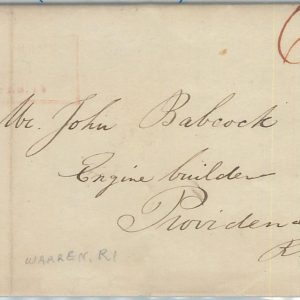 Mr. John Babcock
Engine builder
Providen
R
WARREN, RI